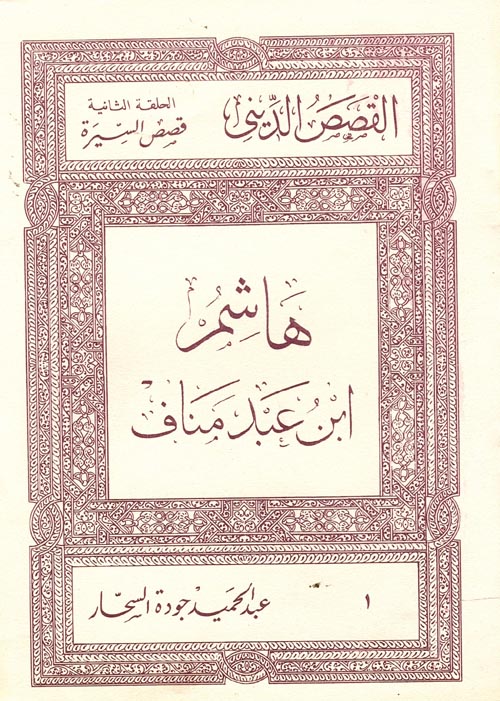 القصص الديني
الحلقة الثانية
قصص السيرة
هَاشِمُ
ابنُ عَبْد مَنَاف
١
عبد الحميد جودة السحّار